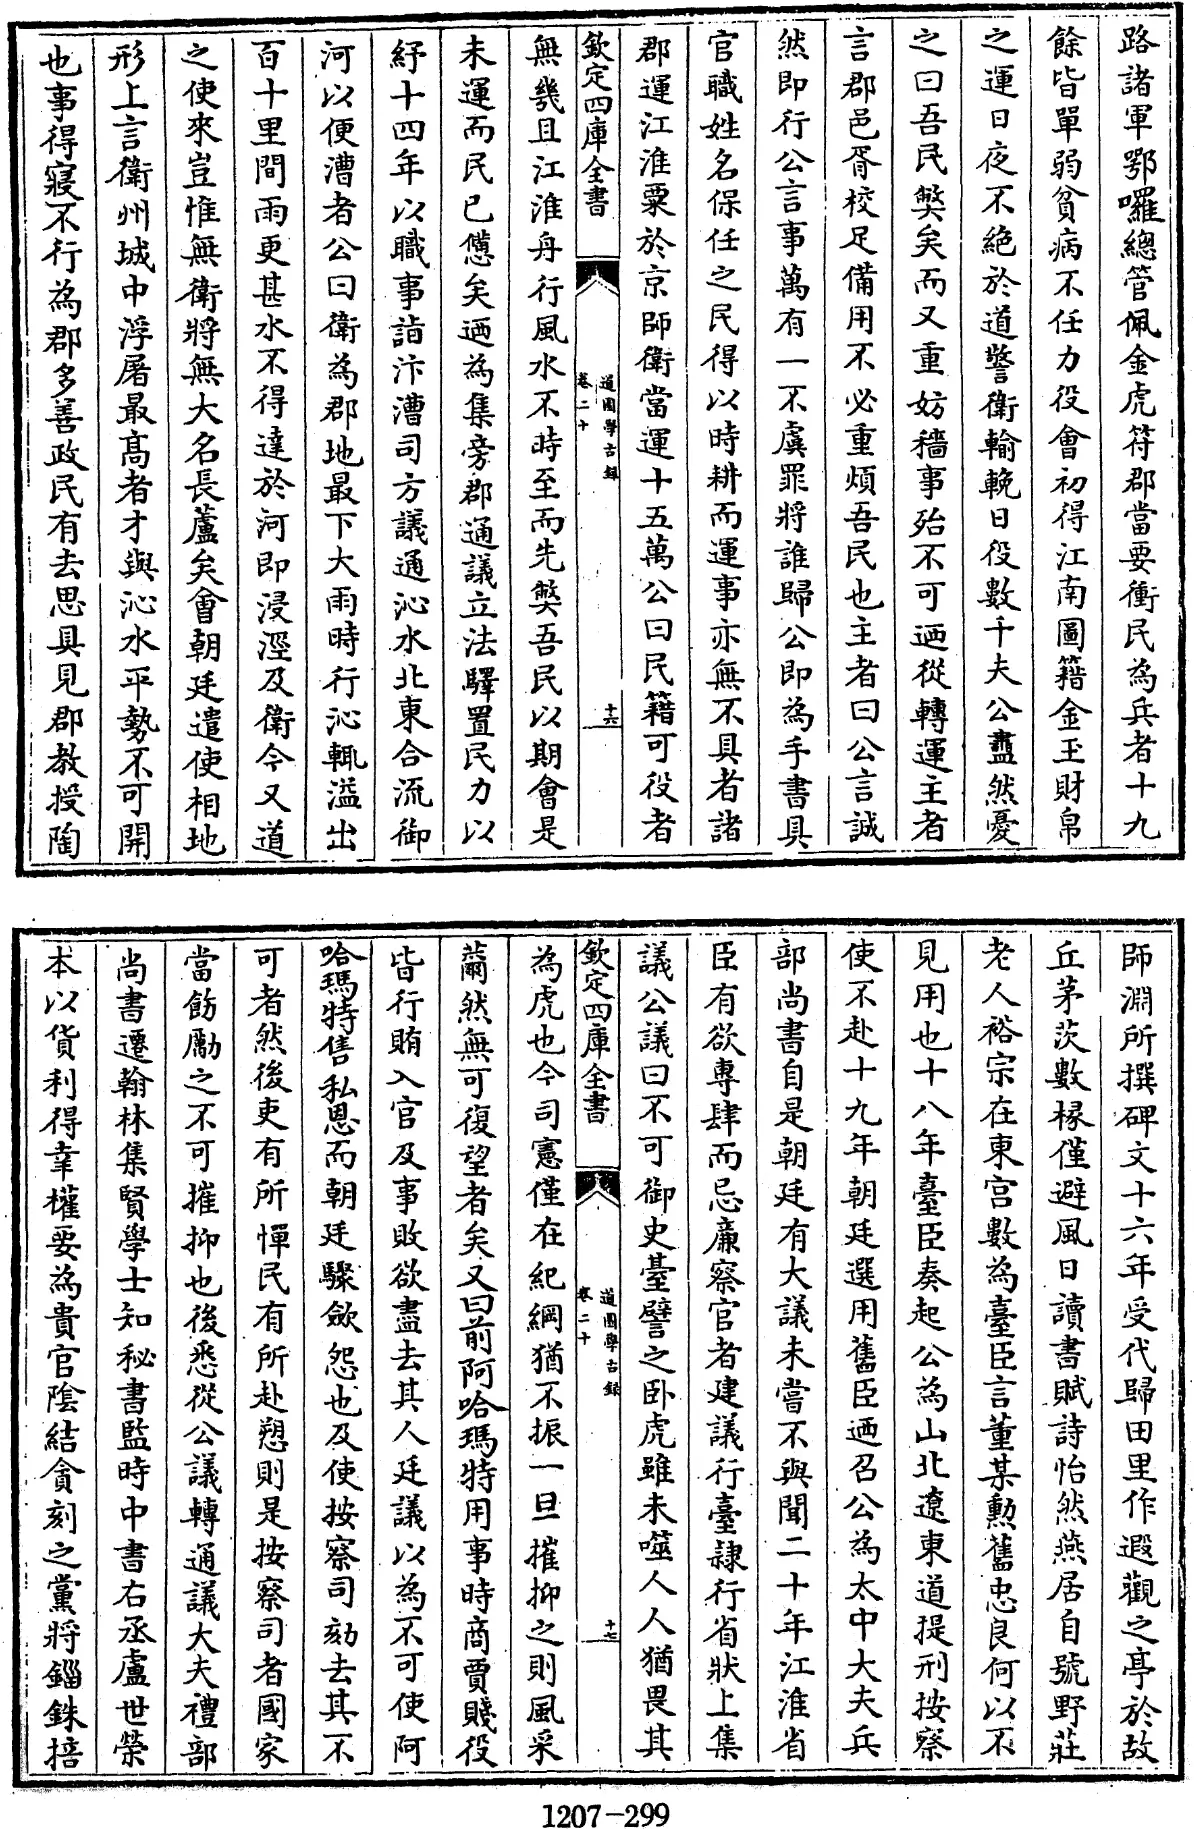 路諸軍鄂囉總管佩金虎符郡當要衝民為兵者十九
餘皆單弱貧病不任力役會初得江南圖籍金玉財帛
之運日夜不絶於道警衛輸輓日役數千夫公盡然憂
之曰吾民弊矣而又重妨穡事殆不可迺從轉運主者
言郡邑胥校足備用不必重煩吾民也主者曰公言誠
然即行公言事萬有一不虞罪將誰歸公即為手書具
官職姓名保任之民得以時耕而運事亦無不具者諸
郡運江淮粟於京師衛當運十五萬公曰民籍可役者
欽定四庫全書
道園學古録
卷二十
十六
無幾且江淮舟行風水不時至而先弊吾民以期會是
未運而民已憊矣迺為集旁郡通議立法驛置民力以
紓十四年以職事詣汴漕司方議通沁水北東合流御
河以便漕者公曰衛為郡地最下大雨時行沁輒溢出
百十里間雨更甚水不得達於河即浸淫及衛今又道
之使來豈惟無衛將無大名長蘆矣會朝廷遣使相地
形上言衛州城中浮屠最高者才與沁水平勢不可開
也事得寢不行為郡多善政民有去思具見郡教授陶
師淵所撰碑文十六年受代歸田里作遐觀之亭於故
丘茅茨數椽僅避風日讀書賦詩怡然燕居自號野莊
老人裕宗在東宮數為臺臣言董某勲舊忠良何以不
見用也十八年臺臣奏起公為山北遼東道提刑按察
使不赴十九年朝廷選用舊臣迺召公為太中大夫兵
部尚書自是朝廷有大議未嘗不與聞二十年江淮省
臣有欲專肆而忌廉察官者建議行臺隷行省狀上集
議公議曰不可御史臺譬之卧虎雖未噬人人猶畏其
欽定四庫全書
道園學古録
卷二十
十七
為虎也今司憲僅在紀綱猶不振一旦摧抑之則風采
薾然無可復望者矣又曰前阿哈瑪特用事時商賈賤役
皆行賄入官及事敗欲盡去其人廷議以為不可使阿
哈瑪特售私恩而朝廷驟斂怨也及使按察司劾去其不
可者然後吏有所憚民有所赴愬則是按察司者國家
當飭勵之不可摧抑也後悉從公議轉通議大夫禮部
尚書遷翰林集賢學士知秘書監時中書右丞盧世榮
本以貨利得幸權要為貴官陰結貪刻之黨將錙銖掊
1207-299